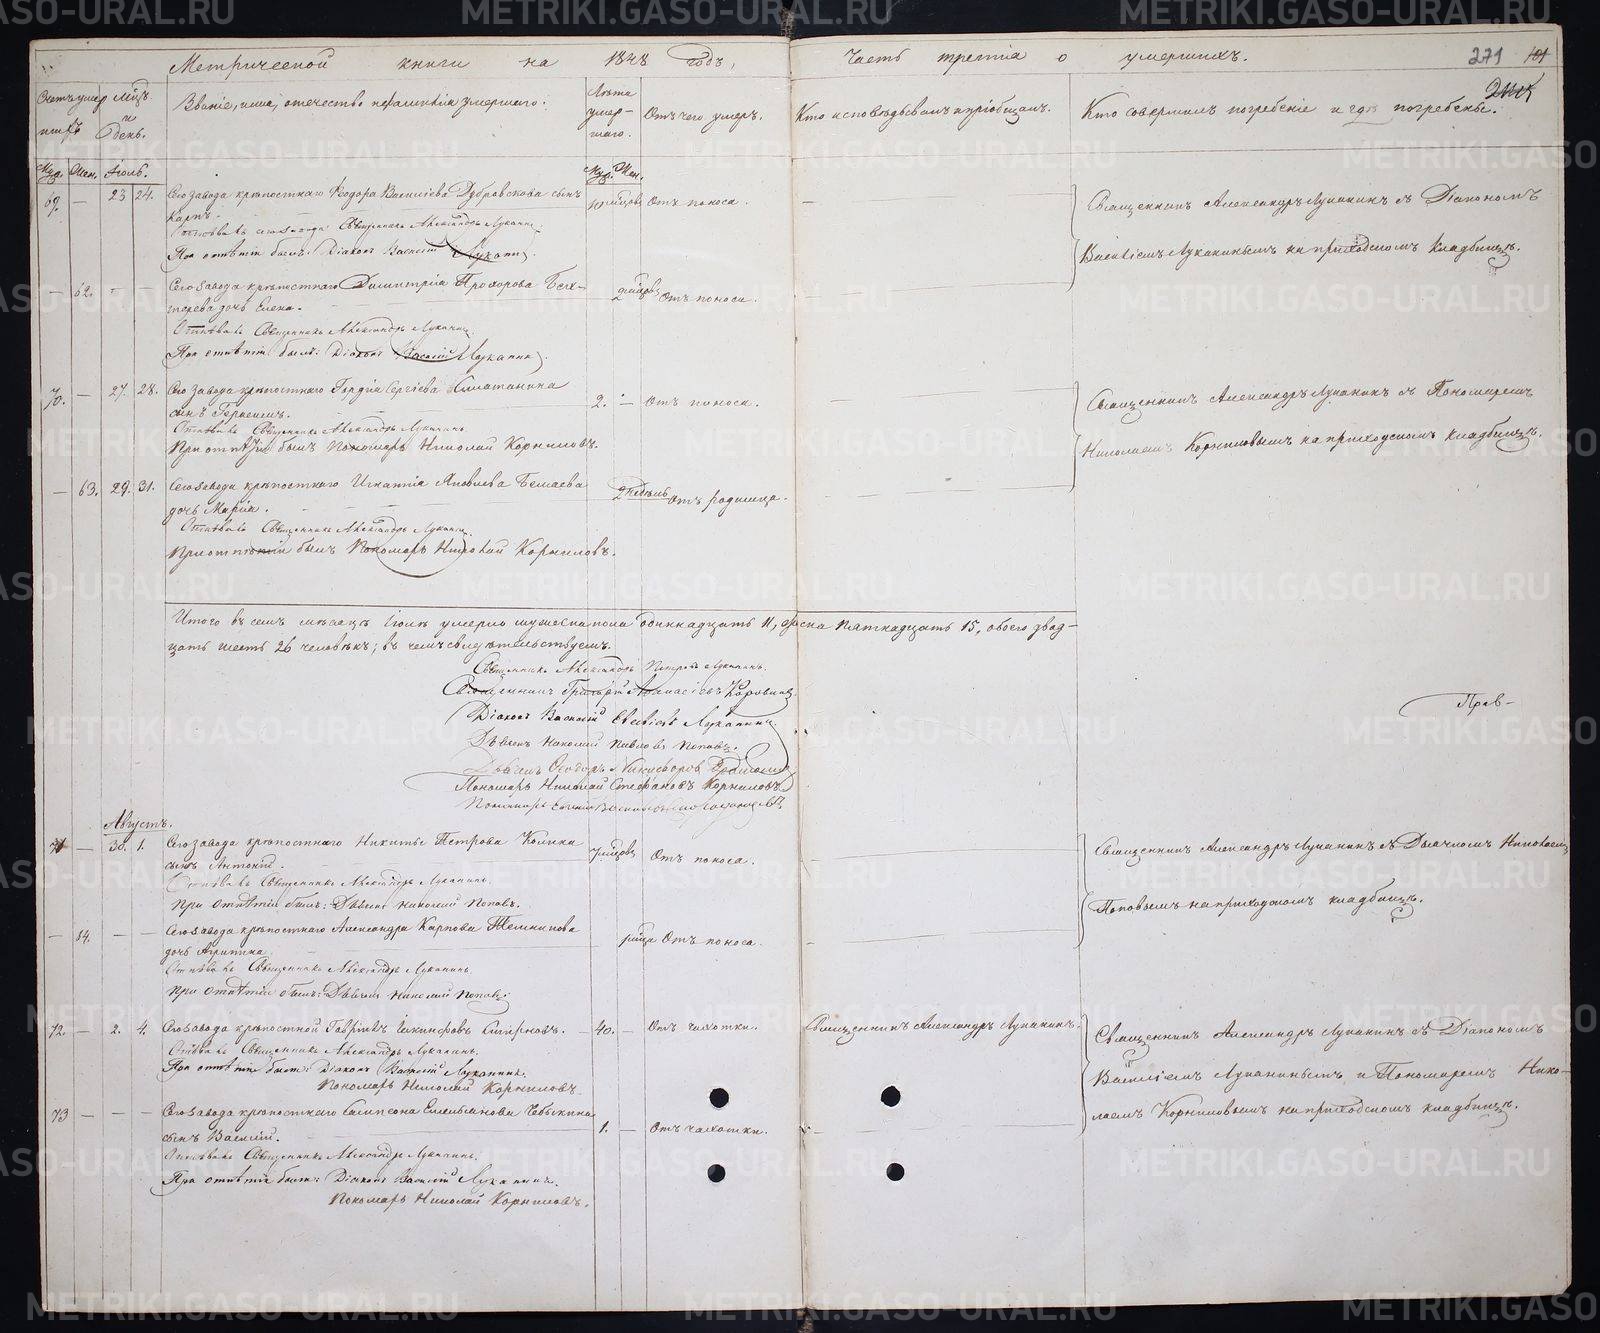 Метрической книги на 1848 годъ,
Часть третія о умершихъ.
271
101
Счетъ умершихъ
Мѣц. и день.
Званіе, имя, отечество и фамилія умершаго.
Лѣта умершаго.
Отъ чего умеръ.
Кто исповѣдывалъ и пріобщалъ.
Кто совершилъ погребеніе и гдѣ погребены.
Муж. Жен. Іюль.
Муж. Жен.
69. — 23 24. Сего завода крѣпостнаго Ѳеодора Василіева Дубровскова сынъ
Карпъ.
мѣсяцовъ Отъ поноса.
Отпѣвалъ сего завода Священникъ Александръ Луканинъ.
При отпѣтіи былъ: Діаконъ Василій Луканин.
Священникъ Александръ Луканинъ съ Діакономъ
Василіемъ Луканинымъ на приходскомъ кладбищѣ.
— 62. — — Сего завода крѣпостнаго Димитрія Прохорова
дочь Елена.
Отъ поноса.
Отпѣвалъ Священникъ Александръ Луканинъ.
При отпѣтіи былъ: Діаконъ Василій Луканин.
70. — 27. 28. Сего завода крѣпостнаго Гордія Сергѣева
сынъ
2. — Отъ поноса.
Отпѣвалъ Священникъ Александръ Луканинъ
При отпѣтіи былъ Пономарь Николай Корниловъ.
Священникъ Александръ Луканинъ съ Пономаремъ
Николаемъ Корниловымъ на приходскомъ кладбищѣ.
— 63. 29. 31. Сего завода крѣпостнаго Игнатія Яковлева
дочь Марія.
2 недѣль Отъ родимца.
Отпѣвалъ Священникъ Александръ Луканинъ.
При отпѣтіи былъ Пономарь Николай Корниловъ.
Итого въ семъ мѣсяцѣ Іюлѣ умерло мужеска пола одиннадцать 11, женска пятнадцать 15, обоего двад-
цать шесть 26 человѣкъ; въ чемъ свидѣтельствуемъ.
Священникъ Александръ Петровъ Луканинъ.
Священникъ Григорій Аѳанасіевъ Коровинъ
Діаконъ Василій Луканинъ.
Дьячекъ Николай Павловъ Поповъ.
Дьячекъ Ѳеодоръ Никифоровъ
Пономарь Николай Стефановъ Корниловъ
Пономарь
Прав-
Августъ.
71 — 30. 1. Сего завода крѣпостнаго Никиты Петрова
сынъ Антоній.
мѣсяцовъ Отъ поноса.
Отпѣвалъ Священникъ Александръ Луканинъ.
При отпѣтіи былъ: Дьячекъ Николай Поповъ.
Священникъ Александръ Луканинъ съ Дьячкомъ Николаемъ
Поповымъ на приходскомъ кладбищѣ.
— 64. — — Сего завода крѣпостнаго Александра Карпова
дочь Агрипина
Отъ поноса.
Отпѣвалъ Священникъ Александръ Луканинъ.
При отпѣтіи былъ: Дьячекъ Николай Поповъ
72. — 2. 4. Сего завода крѣпостной Гавріилъ
40. — Отъ чахотки.
Священникъ Александръ Луканинъ.
Отпѣвалъ Священникъ Александръ Луканинъ.
При отпѣтіи былъ: Діаконъ Василій Луканинъ.
Пономарь Николай Корниловъ
Священникъ Александръ Луканинъ съ Діакономъ
Василіемъ Луканинымъ и Пономаремъ Нико-
лаемъ Корниловымъ на приходскомъ кладбищѣ.
73 — — — Сего завода крѣпостнаго Сампсона Емельянова Чебыкина
сынъ Василій.
1. — Отъ чахотки.
Отпѣвалъ Священникъ Александръ Луканинъ.
При отпѣтіи былъ: Діаконъ Василій Луканинъ.
Пономарь Николай Корниловъ.
METRIKI.GASO-URAL.RU